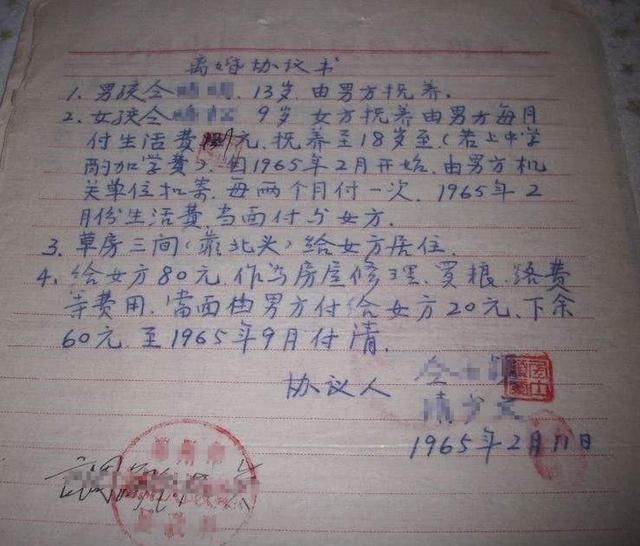 离婚协议书
1. 男孩仝 13岁.由男方抚养.
2. 女孩仝 9岁 女方抚养由男方每月
付生活费 元,抚养至18岁至(若上中学
酌加学费).自1965年2月开始.由男方机
关单位扣寄.每两个月付一次.1965年2
月份生活费.当面付与女方.
3. 草房三间(靠北头)给女方居住.
4. 给女方80元.作为房屋修理.买粮.路费
等费用.当面由男方付给女方20元.下余
60元.至1965年9月付清.
协议人 仝
1965年2月11日